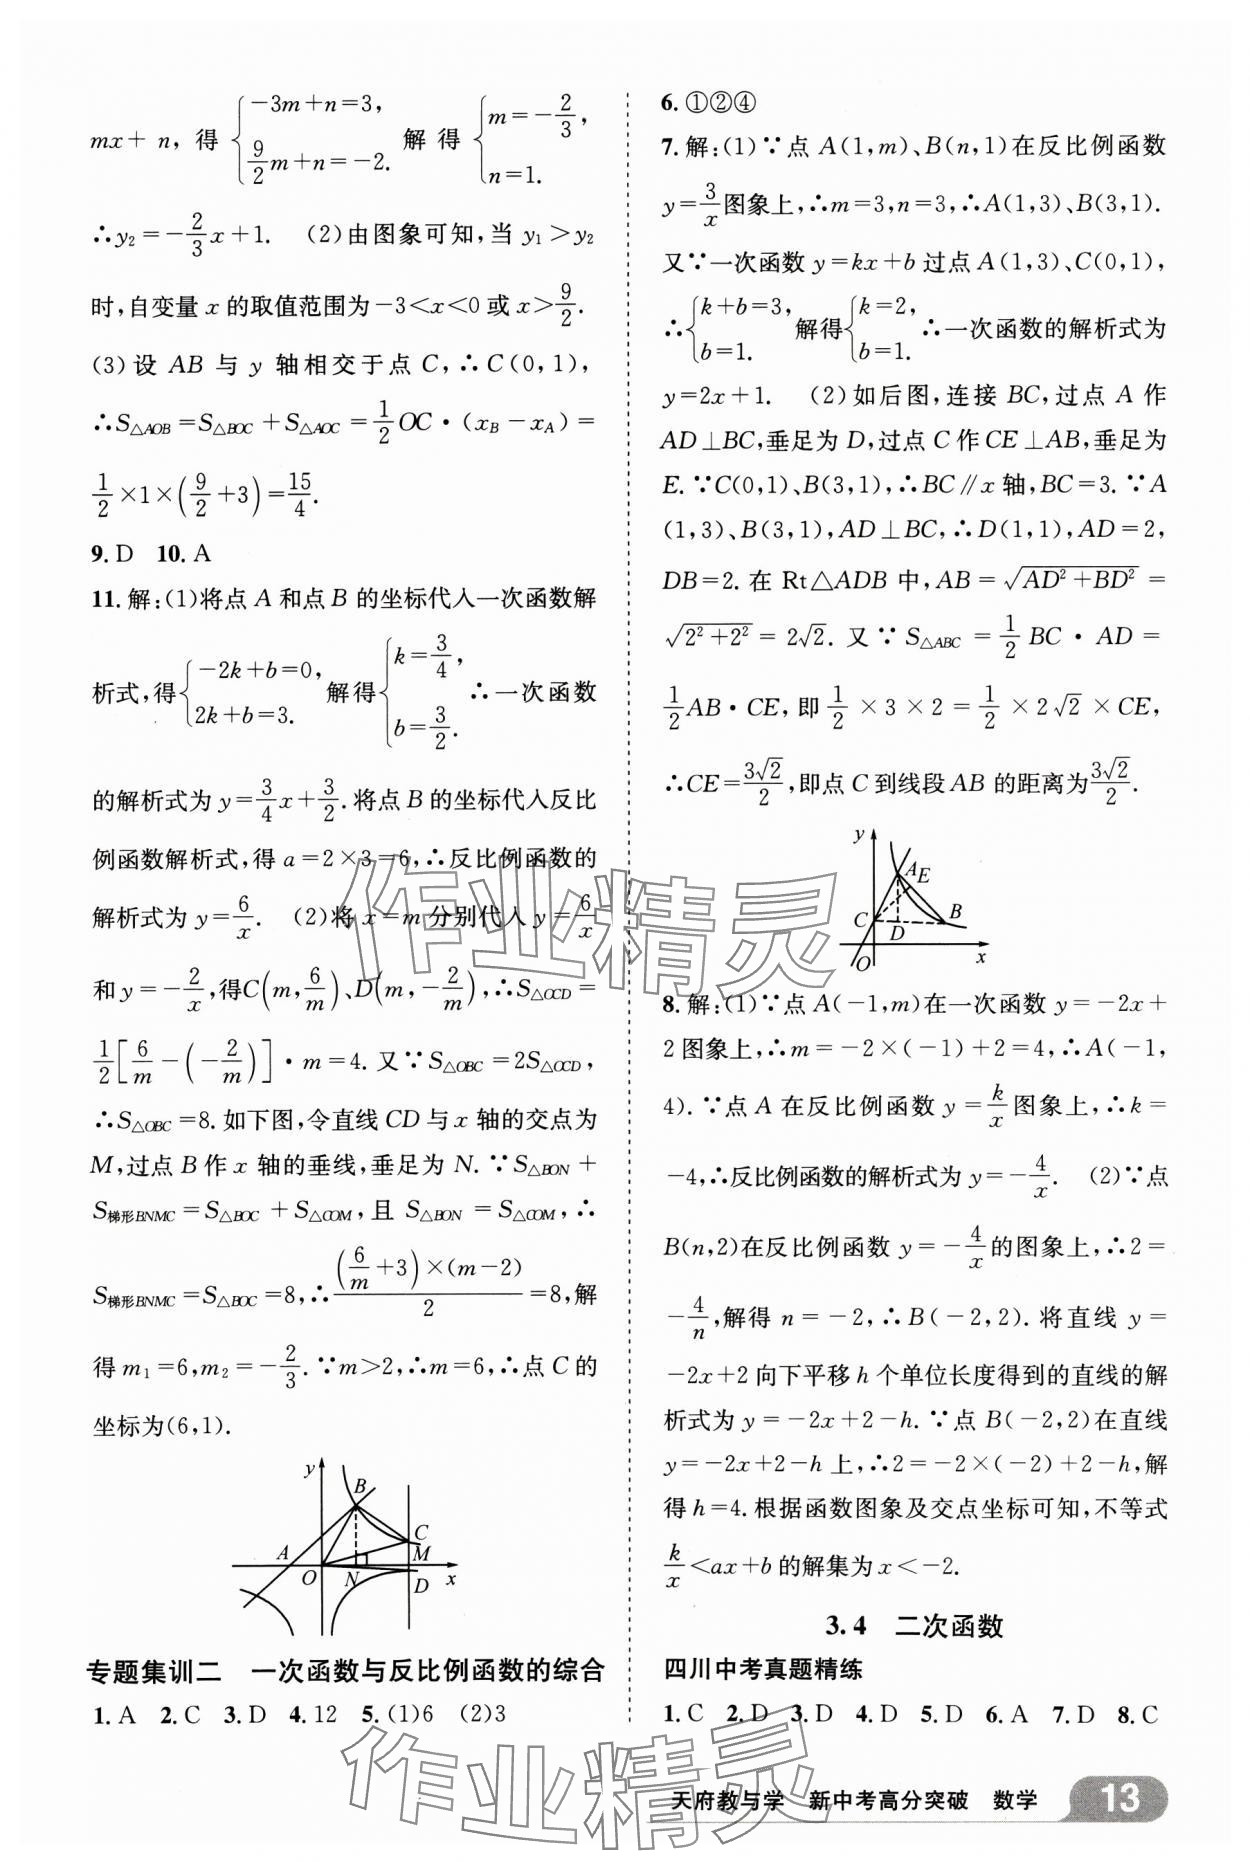 mx+n,得{-3m+n=3, 9/2 m+n=-2. 解得{m=-2/3, n=1.
∴y₂=-2/3 x+1. (2)由图象可知,当 y₁>y₂
时,自变量 x 的取值范围为-3<x<0 或 x>9/2.
(3)设 AB 与 y 轴相交于点 C,∴C(0,1),
∴S△AOB=S△BOC+S△AOC=1/2 OC·(x_B-x_A)=
1/2×1×(9/2+3)=15/4.
9. D 10. A
11. 解:(1)将点 A 和点 B 的坐标代入一次函数解
析式,得{-2k+b=0, 2k+b=3. 解得{k=3/4, b=3/2. ∴一次函数
的解析式为 y=3/4 x+3/2. 将点 B 的坐标代入反比
例函数解析式,得 a=2×3=6,∴反比例函数的
解析式为 y=6/x. (2)将 x=m 分别代入 y=6/x
和 y=-2/x,得C(m,6/m)、D(m,-2/m),∴S△OCD=
1/2[6/m-(-2/m)]·m=4. 又∵S△OBC=2S△OCD,
∴S△OBC=8. 如下图,令直线 CD 与 x 轴的交点为
M,过点 B 作 x 轴的垂线,垂足为 N. ∵S△BON+
S梯形BNMC=S△BOC+S△COM,且 S△BON=S△COM,∴
S梯形BNMC=S△BOC=8,∴(6/m+3)×(m-2)/2=8,解
得 m₁=6,m₂=-2/3. ∵m>2,∴m=6,∴点 C 的
坐标为(6,1).
y
B
C
A
M
O
N
D
x
专题集训二 一次函数与反比例函数的综合
1. A 2. C 3. D 4. 12 5. (1)6 (2)3
6. ①②④
7. 解:(1)∵点 A(1,m)、B(n,1)在反比例函数
y=3/x图象上,∴m=3,n=3,∴A(1,3)、B(3,1).
又∵一次函数 y=kx+b 过点 A(1,3)、C(0,1),
∴{k+b=3, b=1. 解得{k=2, b=1. ∴一次函数的解析式为
y=2x+1. (2)如后图,连接 BC,过点 A 作
AD⊥BC,垂足为 D,过点 C 作 CE⊥AB,垂足为
E. ∵C(0,1)、B(3,1),∴BC∥x 轴,BC=3. ∵A
(1,3)、B(3,1),AD⊥BC,∴D(1,1),AD=2,
DB=2. 在 Rt△ADB 中,AB=√(AD²+BD²)=
√(2²+2²)=2√2. 又∵S△ABC=1/2 BC·AD=
1/2 AB·CE,即 1/2×3×2=1/2×2√2×CE,
∴CE=3√2/2,即点 C 到线段 AB 的距离为3√2/2.
y
A
E
C
B
D
O
x
8. 解:(1)∵点 A(-1,m)在一次函数 y=-2x+
2 图象上,∴m=-2×(-1)+2=4,∴A(-1,
4). ∵点 A 在反比例函数 y=k/x 图象上,∴k=
-4,∴反比例函数的解析式为 y=-4/x. (2)∵点
B(n,2)在反比例函数 y=-4/x 的图象上,∴2=
-4/n,解得 n=-2,∴B(-2,2). 将直线 y=
-2x+2 向下平移 h 个单位长度得到的直线的解
析式为 y=-2x+2-h. ∵点 B(-2,2)在直线
y=-2x+2-h 上,∴2=-2×(-2)+2-h,解
得 h=4. 根据函数图象及交点坐标可知,不等式
k/x<ax+b 的解集为 x<-2.
3.4 二次函数
四川中考真题精练
1. C 2. D 3. D 4. D 5. D 6. A 7. D 8. C
作业精灵
作业精灵
天府教与学 新中考高分突破 数学 13